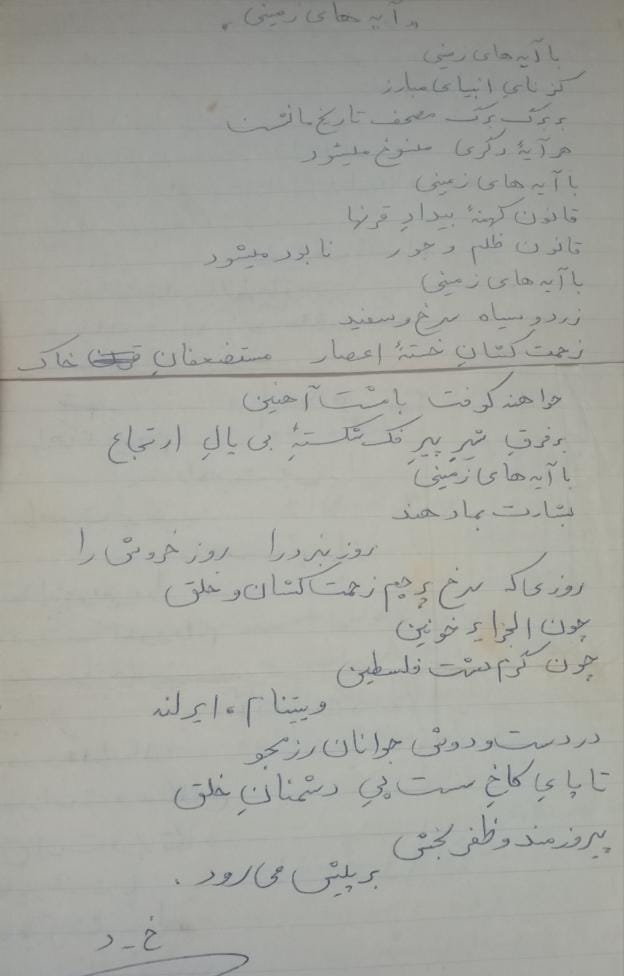 « آیه های زمینی »
با آیه های زمینی
کز نای انبیای مبارز
بر برگ برگ مصحف تاریخ مانشست
هر آیهٔ دگری منسوخ میشود
با آیه های زمینی
قانون کهنهٔ بیدادِ قرنها
قانون ظلم و جور نابود میشود
با آیه های زمینی
زرد و سیاه سرخ و سفید
زحمت کشانِ خستهٔ اعصار مستضعفانِ خاک
خواهند کوفت با مشت آهنین
بر فرقِ شیرِ پیرِ فک شکستهٔ بی یالِ ارتجاع
با آیه های زمینی
بشارت بما دهند
روز نبرد را روز خروش را
روزی که سرخ پرچم زحمت کشان و خلق
چون الجزایر خونین
چون فلسطین
ویتنام ، ایرلند
در دست و دوش جوانان رزمجو
تا پایِ کاخِ سست پیِ دشمنانِ خلق
پیروزمند و ظفربخش
بر پیش می رود .
خ - د